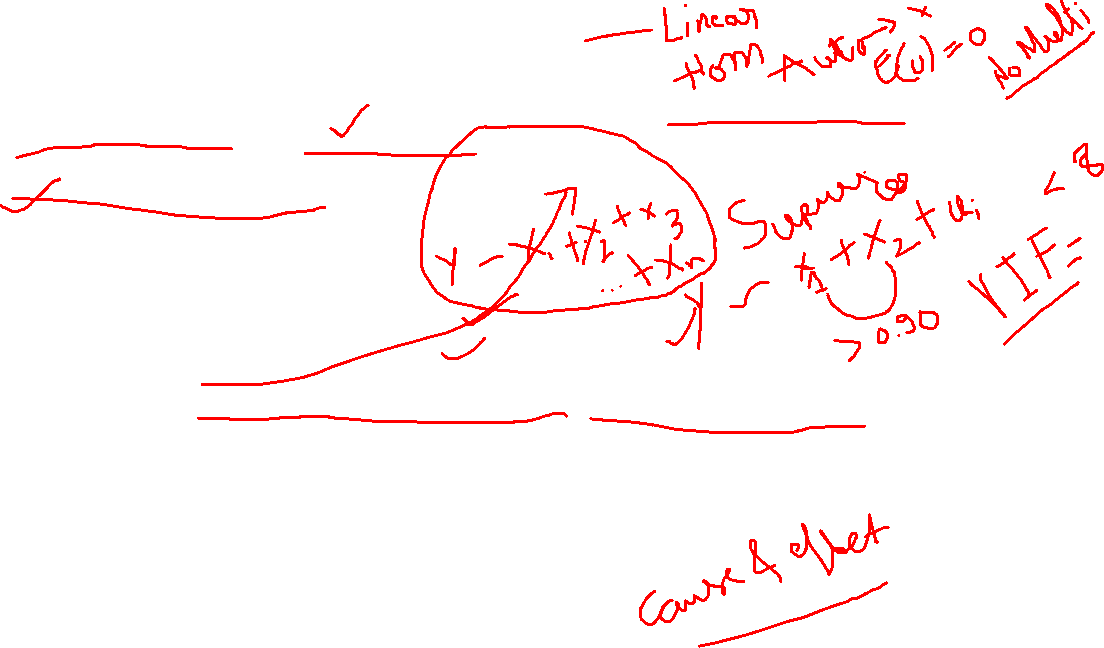 Linear
Hom Auto x E(u) = 0 No Multi
Y - X1 + X2 + x3
... + Xn
Y - x1 + X2 + ui < 8
> 0.90
VIF =
Cause & effect